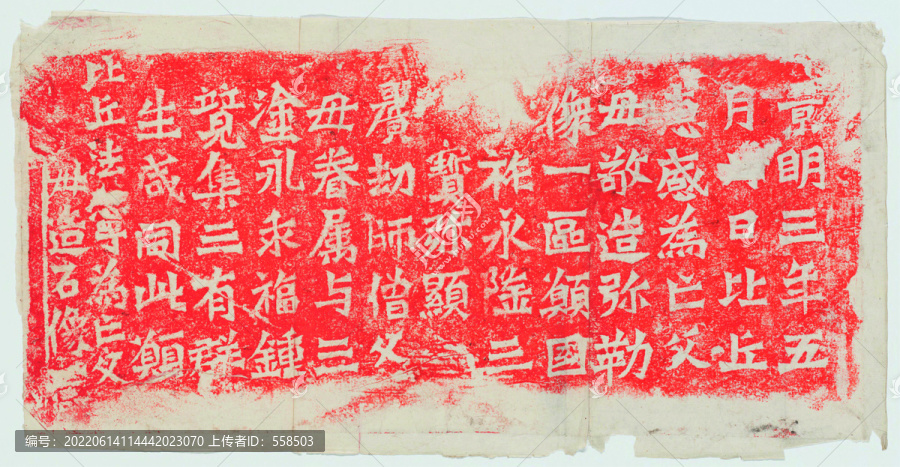 景明三年五
月日比丘
惠感為亡父
母敬造弥勒
像一區願國
祚永隆三
寶弥顯
曠劫師僧父
母眷属与三
塗永乖福鍾
競集三有群
生咸同此願
比丘法寧為亡父
母造石像
编号：20220614114442023070 上传者ID：558503